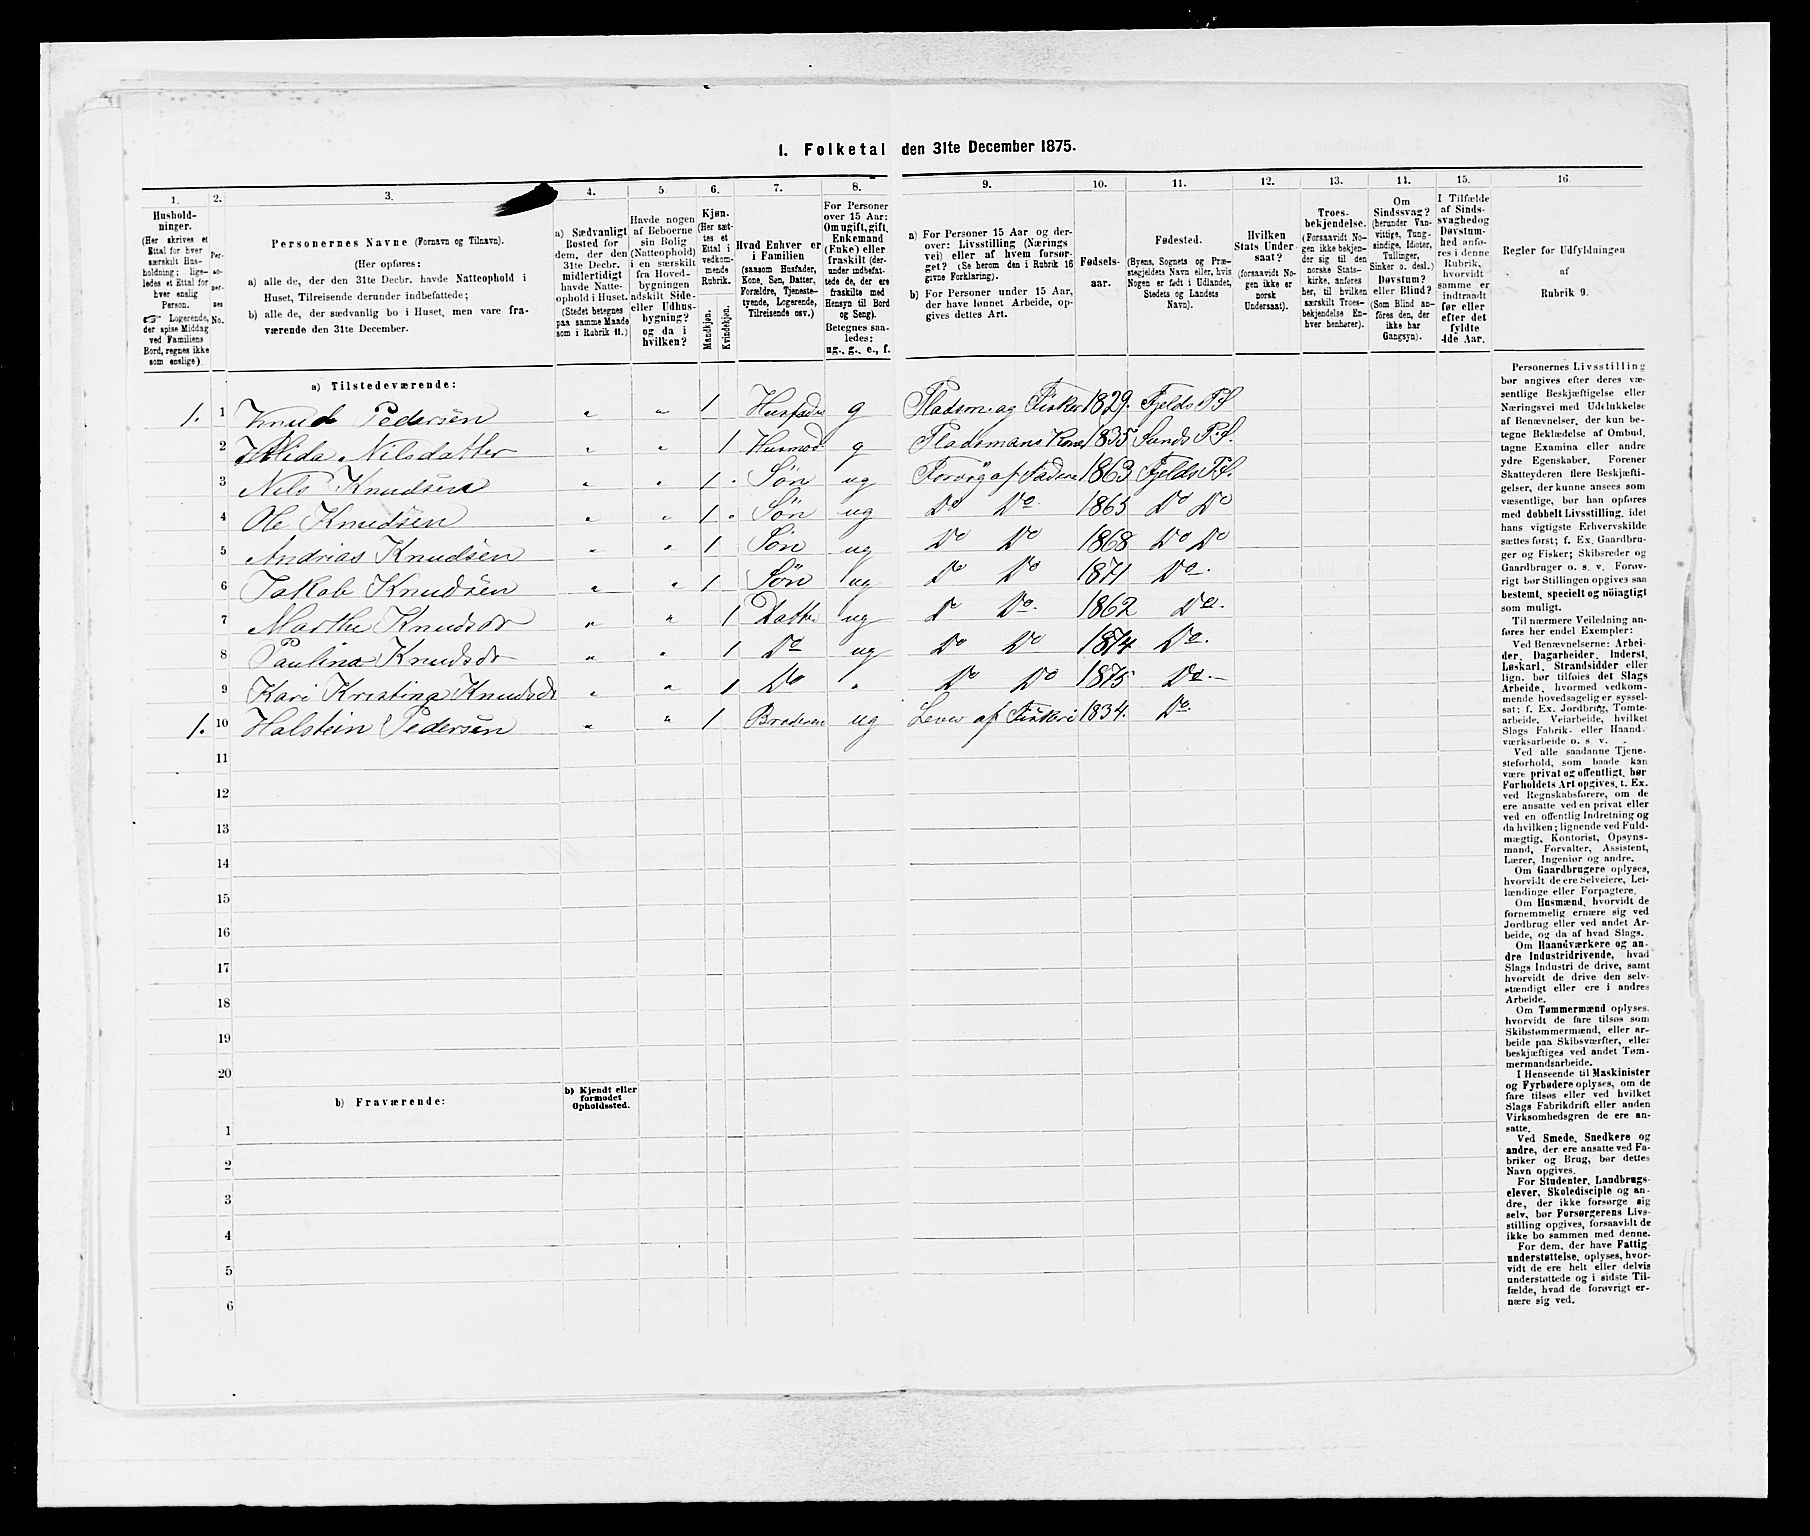 1. Folketal den 31te December 1875.
1. 2. 3. 4. 5. 6. 7. 8. 9. 10. 11. 12. 13. 14. 15. 16.
Hushold-
ninger.
(Her skrives et
Ettal for hver
særskilt Hus-
holdning; lige-
ledes et Ettal for
hver enslig
Person.
Logerende,
der spise Middag
ved Familiens
Bord, regnes ikke
som enslige).
Per-
so-
ner-
nes
No.
Personernes Navne (Fornavn og Tilnavn).
(Her opføres:
a) alle de, der den 31te Decbr. havde Natteophold i
Huset, Tilreisende derunder indbefattede;
b) alle de, der sædvanlig bo i Huset, men vare fra-
værende den 31te December.
a) Sædvanligt
Bosted for
dem, der den
31te Decbr.
midlertidigt
havde Natte-
ophold i Huset.
(Stedet betegnes
paa samme Maade
som i Rubrik 11.)
Havde nogen
af Beboerne
sin Bolig
(Natteophold)
i en særskilt
fra Hoved-
bygningen
adskilt Side-
eller Udhus-
bygning?
og da i
hvilken?
Kjøn.
(Her sæt-
tes et
Ettal i
vedkom-
mende
Rubrik.
Mandkjøn.
Kvindekjøn.
Hvad Enhver er
i Familien
(saasom Husfader,
Kone, Søn, Datter,
Forældre, Tjeneste-
tyende, Logerende,
Tilreisende osv.)
For Personer
over 15 Aar:
Om ugift, gift,
Enkemand
(Enke) eller
fraskilt (der-
under indbefat-
tede de, der ere
fraskilte med
Hensyn til Bord
og Seng).
Betegnes saa-
ledes:
ug., g., e., f.
a) For Personer 15 Aar og der-
over: Livsstilling (Nærings-
vei) eller af hvem forsør-
get? (Se herom den i Rubrik 16
givne Forklaring).
b) For Personer under 15 Aar,
der have lønnet Arbeide, op-
gives dettes Art.
Fødsels-
aar.
Fødested.
(Byens, Sognets og Præ-
stegjeldets Navn eller, hvis
Nogen er født i Udlandet,
Stedets og Landets
Navn).
Hvilken
Stats Under-
saat?
(forsaavidt No-
gen ikke er
norsk
Undersaat).
Troes-
bekjendelse.
(Forsaavidt No-
gen ikke bekjen-
der sig til den
norske Stats-
kirke, anføres
her, til hvilken
særskilt Troes-
bekjendelse En-
hver henhører).
Om
Sindssvag?
(herunder Van-
vittige, Tung-
sindige, Idioter,
Tullinger,
Sinker o. desl.)
Døvstum?
eller Blind?
(Som Blind an-
føres den, der
ikke har
Gangsyn).
I Tilfælde
af Sinds-
svaghed og
Døvstum-
hed anfø-
res i denne
Rubrik,
hvorvidt
samme er
indtraadt
før eller
efter det
fyldte
4de Aar.
Regler for Udfyldningen
af
Rubrik 9.
a) Tilstedeværende:
1. 1 Knud Pedersen „ „ 1 Husfader g Pladsm. og Fisker 1829. Fjelds Pf.
2 Nilsdatter „ „ 1 Husmod g Pladsmans Kone 1835 Sunds P.f.
3 Nils Knudsen „ „ 1 Søn ug Forsørg af Faderen 1863 Fjelds Pf.
4 Ole Knudsen „ „ 1 Søn ug Do Do 1865 Do Do
5 Andrias Knudsen „ „ 1 Søn ug Do Do 1868 Do Do
6 Jakob Knudsen „ „ 1 Søn ug Do Do 1871 Do.
7 Marthe Knudsdr „ „ 1 Datter ug Do Do. 1862 Do.
8 Paulina Knudsdr „ „ 1 Do ug Do Do 1874 Do.
9 Kari Kristina Knudsdr „ „ 1 Do „ Do Do 1875 Do.
1. 10 Halstein Pedersen „ „ 1 Broderen ug Lever af Fiskeri 1834. Do.
11
12
13
14
15
16
17
18
19
20
b) Fraværende:
b) Kjendt eller
formodet
Opholdssted.
1
2
3
4
5
6
Personernes Livsstilling
bør angives efter deres væ-
sentlige Beskjæftigelse eller
Næringsvei med Udelukkelse
af Benævnelser, der kun be-
tegne Beklædelse af Ombud,
tagne Examina eller andre
ydre Egenskaber. Forener
Skatteyderen flere Beskjæfti-
gelser, der kunne ansees som
væsentlige, bør han opføres
med dobbelt Livsstilling, idet
hans vigtigste Erhvervskilde
sættes først; f. Ex. Gaardbru-
ger og Fisker; Skibsreder og
Gaardbruger o. s. v. Forøv-
rigt bør Stillingen opgives saa
bestemt, specielt og nöiagtigt
som muligt.
Til nærmere Veiledning an-
føres her endel Exempler:
Ved Benævnelserne: Arbei-
der, Dagarbeider, Inderst,
Løskarl, Strandsidder eller
lign. bør tilføies det Slags
Arbeide, hvormed vedkom-
mende hovedsagelig er syssel-
sat; f. Ex. Jordbrug, Tomte-
arbeide, Veiarbeide, hvilket
Slags Fabrik- eller Haand-
værksarbeide o. s. v.
Ved alle saadanne Tjene-
steforhold, som baade kan
være privat og offentligt, bør
Forholdets Art opgives, t. Ex.
ved Regnskabsførere, om de
ere ansatte ved en privat eller
ved en offentlig Indretning og
da hvilken; lignende ved Fuld-
mægtig, Kontorist, Opsyns-
mand, Forvalter, Assistent,
Lærer, Ingeniør og andre.
Om Gaardbrugere oplyses,
hvorvidt de ere Selveiere, Lei-
lændinge eller Forpagtere.
Om Husmænd, hvorvidt de
fornemmelig ernære sig ved
Jordbrug eller ved andet Ar-
beide, og da af hvad Slags.
Om Haandværkere og an-
dre Industridrivende, hvad
Slags Industri de drive, samt
hvorvidt de drive den selv-
stændigt eller ere i andres
Arbeide.
Om Tømmermænd oplyses,
hvorvidt de fare tilsøs som
Skibstømmermænd, eller ar-
beide paa Skibsværfter, eller
beskjæftiges ved andet Tøm-
mermandsarbeide.
I Henseende til Maskinister
og Fyrbødere oplyses, om de
fare tilsøs eller ved hvilket
Slags Fabrikdrift eller anden
Virksomhedsgren de ere an-
satte.
Ved Smede, Snedkere og
andre, der ere ansatte ved Fa-
briker og Brug, bør dettes
Navn opgives.
For Studenter, Landbrugs-
elever, Skoledisciple og an-
dre, der ikke forsørge sig
selv, bør Forsørgerens Livs-
stilling opgives, forsaavidt de
ikke bo sammen med denne.
For dem, der have Fattig-
understøttelse, oplyses, hvor-
vidt de ere helt eller delvis
understøttede og i sidste Til-
fælde, hvad de forøvrigt er-
nære sig ved.